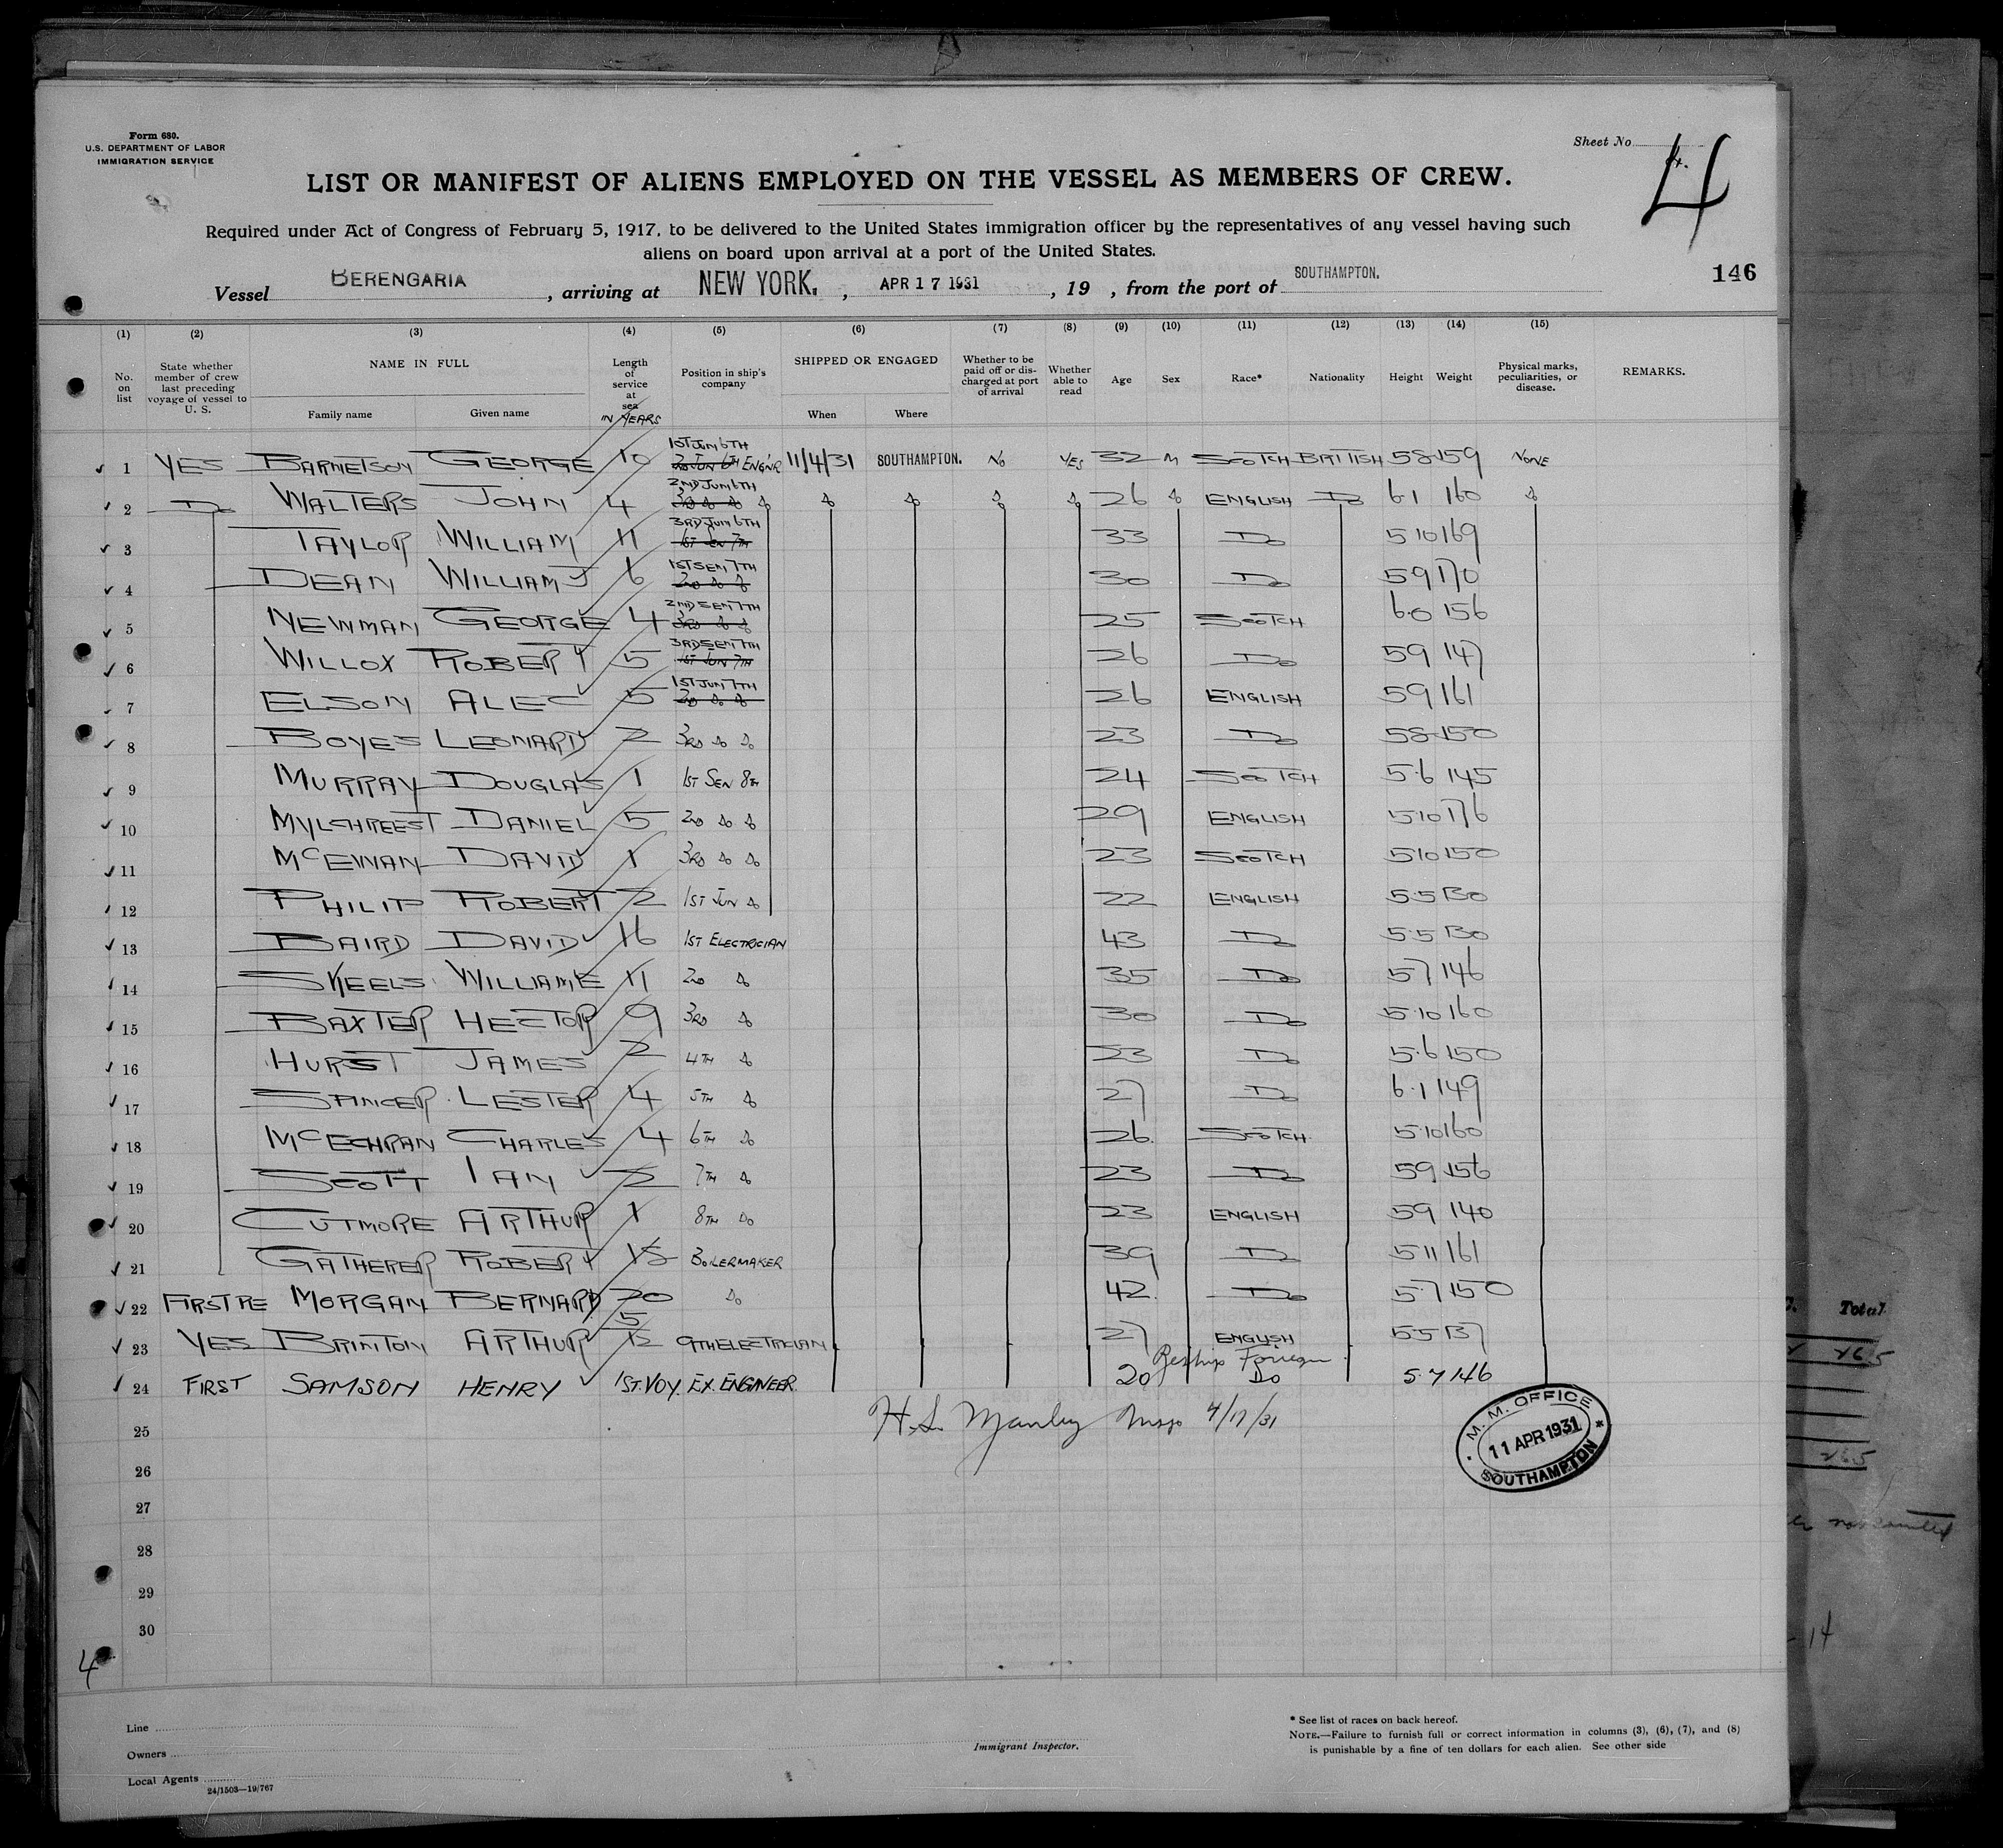 Form 680.
U.S. DEPARTMENT OF LABOR
IMMIGRATION SERVICE
Sheet No. 4
LIST OR MANIFEST OF ALIENS EMPLOYED ON THE VESSEL AS MEMBERS OF CREW.
Required under Act of Congress of February 5, 1917, to be delivered to the United States immigration officer by the representatives of any vessel having such
aliens on board upon arrival at a port of the United States.
Vessel BERENGARIA, arriving at NEW YORK., APR 17 1931, 19 , from the port of SOUTHAMPTON.
146
(1) (2) (3) (4) (5) (6) (7) (8) (9) (10) (11) (12) (13) (14) (15)
No. on list
State whether member of crew last preceding voyage of vessel to U. S.
NAME IN FULL
Family name Given name
Length of service at sea
IN YEARS
Position in ship's company
SHIPPED OR ENGAGED
When Where
Whether to be paid off or discharged at port of arrival
Whether able to read
Age Sex Race* Nationality Height Weight
Physical marks, peculiarities, or disease.
REMARKS.
1 YES BARNETSON GEORGE 10 1ST JUN 6TH ENGNR 11/4/31 SOUTHAMPTON. No YES 32 M SCOTCH BRITISH 5·8 159 NONE
2 Do WALTERS JOHN 4 2ND JUN 6TH Do Do Do Do Do 26 Do ENGLISH Do 6·1 160 Do
3 TAYLOR WILLIAM 11 3RD JUN 6TH 33 Do 5·10 169
4 DEAN WILLIAM J 6 1ST SEN 7TH 30 Do 5·9 170
5 NEWMAN GEORGE 4 2ND SEN 7TH 25 SCOTCH 6·0 156
6 WILLOX ROBERT 5 3RD SEN 7TH 26 Do 5·9 147
7 ELSON ALEC 5 1ST JUN 7TH 26 ENGLISH 5·9 161
8 BOYES LEONARD 2 3RD Do Do 23 Do 5·8 150
9 MURRAY DOUGLAS 1 1ST SEN 8TH 24 SCOTCH 5·6 145
10 MYLCHREEST DANIEL 5 2ND Do Do 29 ENGLISH 5·10 176
11 McEWAN DAVID 1 3RD Do Do 23 SCOTCH 5·10 150
12 PHILIP ROBERT 2 1ST JUN Do 22 ENGLISH 5·5 130
13 BAIRD DAVID 16 1ST ELECTRICIAN 43 Do 5·5 130
14 SKEELS WILLIAM E 11 2ND Do 35 Do 5·7 146
15 BAXTER HECTOR 9 3RD Do 30 Do 5·10 160
16 HURST JAMES 2 4TH Do 23 Do 5·6 150
17 SANGER LESTER 4 5TH Do 27 Do 6·1 149
18 McECHRAN CHARLES 4 6TH Do 26 SCOTCH 5·10 160
19 SCOTT IAN 2 7TH Do 23 Do 5·9 156
20 CUTMORE ARTHUR 1 8TH Do 23 ENGLISH 5·9 140
21 GATHERER ROBERT 18 BOILERMAKER 39 Do 5·11 161
22 FIRST RE MORGAN BERNARD 20 Do 42 Do 5·7 150
23 YES BRINTON ARTHUR 5 9TH ELECTRICIAN 27 ENGLISH 5·5 137
Reship Foreign
24 FIRST SAMSON HENRY 1ST. VOY. EX. ENGINEER 20 Do 5·7 146
H.S. Manley Insp 4/17/31
25
26
27
28
29
30
M. M. OFFICE
11 APR 1931
SOUTHAMPTON
4
Line
Owners
Local Agents
24/1503—19/767
Immigrant Inspector.
* See list of races on back hereof.
NOTE.—Failure to furnish full or correct information in columns (3), (6), (7), and (8)
is punishable by a fine of ten dollars for each alien. See other side
Total
265
265
14